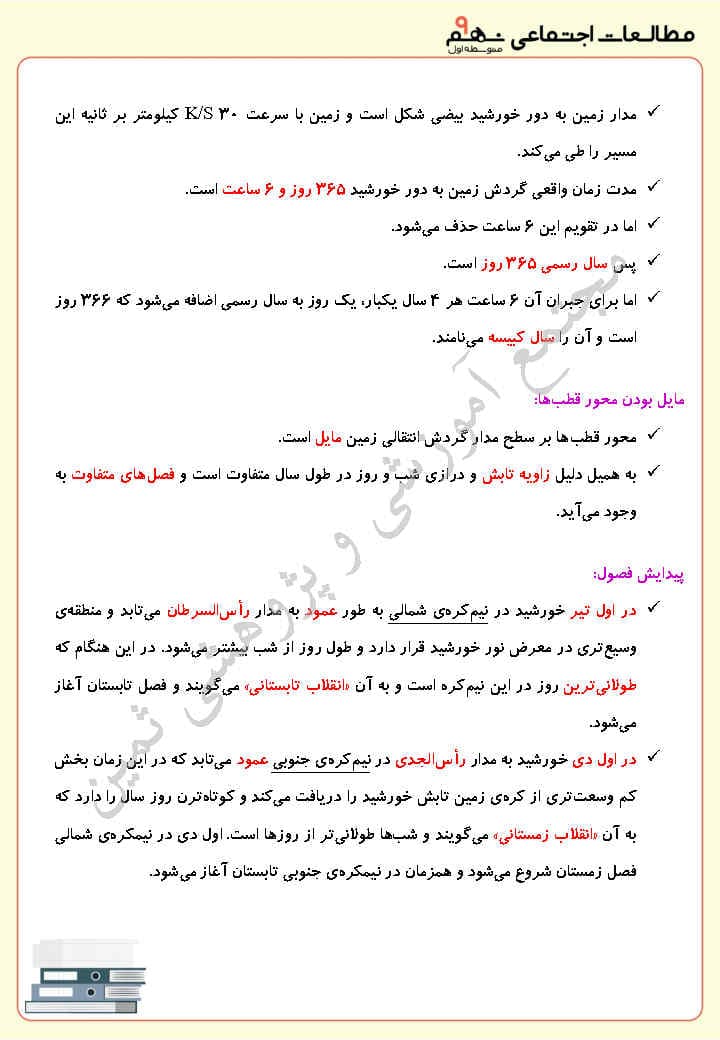 مطالعات اجتماعی نهم ۹
متوسطه اول
مدار زمین به دور خورشید بیضی شکل است و زمین با سرعت ۳۰ K/S کیلومتر بر ثانیه این
مسیر را طی می‌کند.
مدت زمان واقعی گردش زمین به دور خورشید ۳۶۵ روز و ۶ ساعت است.
اما در تقویم این ۶ ساعت حذف می‌شود.
پس سال رسمی ۳۶۵ روز است.
اما برای جبران آن ۶ ساعت هر ۴ سال یکبار، یک روز به سال رسمی اضافه می‌شود که ۳۶۶ روز
است و آن را سال کبیسه می‌نامند.
مایل بودن محور قطب‌ها:
محور قطب‌ها بر سطح مدار گردش انتقالی زمین مایل است.
به همیل دلیل زاویه تابش و درازی شب و روز در طول سال متفاوت است و فصل‌های متفاوت به
وجود می‌آید.
پیدایش فصول:
در اول تیر خورشید در نیم‌کره‌ی شمالی به طور عمود به مدار رأس‌السرطان می‌تابد و منطقه‌ی
وسیع‌تری در معرض نور خورشید قرار دارد و طول روز از شب بیشتر می‌شود. در این هنگام که
طولانی‌ترین روز در این نیم‌کره است و به آن «انقلاب تابستانی» می‌گویند و فصل تابستان آغاز
می‌شود.
در اول دی خورشید به مدار رأس‌الجدی در نیم‌کره‌ی جنوبی عمود می‌تابد که در این زمان بخش
کم وسعت‌تری از کره‌ی زمین تابش خورشید را دریافت می‌کند و کوتاه‌ترن روز سال را دارد که
به آن «انقلاب زمستانی» می‌گویند و شب‌ها طولانی‌تر از روزها است. اول دی در نیمکره‌ی شمالی
فصل زمستان شروع می‌شود و همزمان در نیمکره‌ی جنوبی تابستان آغاز می‌شود.
مجتمع آموزشی و پژوهشی ثمین